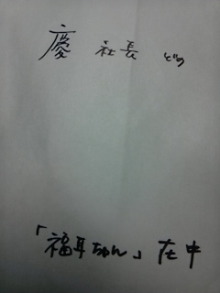 慶 社長 どの
「福耳ちゃん」在中